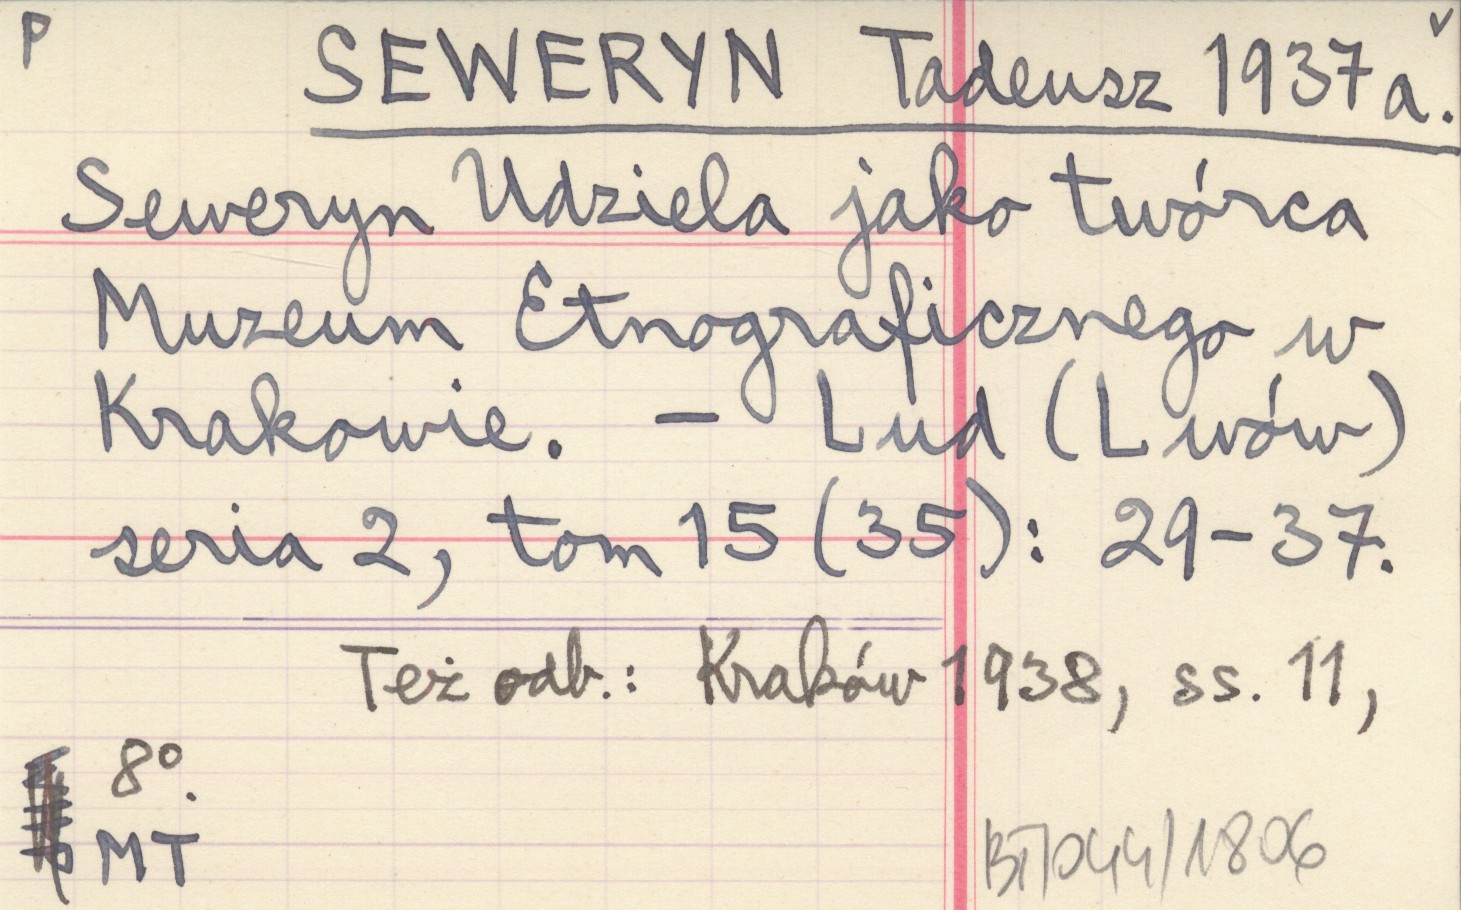 P SEWERYN Tadeusz 1937a. v
Seweryn Udziela jako twórca
Muzeum Etnograficznego w
Krakowie. – Lud (Lwów)
seria 2, tom 15 (35): 29-37.
Też odb.: Kraków 1938, ss. 11,
8°.
MT
BT/044/1806